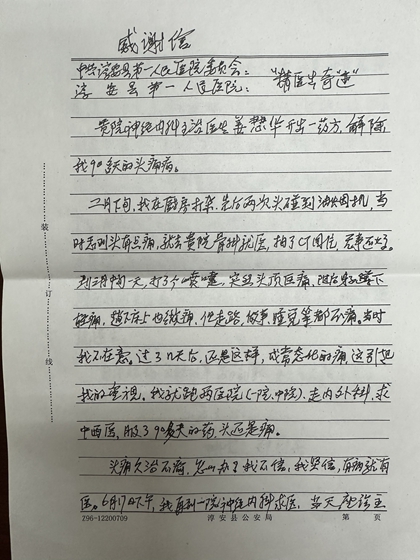 感谢信
中共淳安县第一人民医院委员会：
淳安县第一人民医院： "精医出奇迹"
贵院神经内科主治医生姜慧华开出一药方，解除
我90多天的头痛病。
二月下旬，我在厨房打杂，先后两次头碰到油烟机，当
时感到头有点痛，就去贵院骨科就医，拍了CT图位，无事还好。
到三月中旬一天，打了个喷嚏，突然头顶巨痛，随后 蹲下
脏痛，躺床上也微痛，但走路、做事、睡觉等都不痛。当时
我不在意。过了几天后，还是这样，成常态化的痛，这引起
我的重视。我就跑两医院(一院、中院)、走内外科，求
中西医，服了90多天的药，头还是痛。
头痛久治不愈，怎么办？我不信，我坚信，有病就有
医。6月17日下午，我再到一院神经内科求医，当天 诊主
装 订 线
Z96-12200709 淳安县公安局 第 页